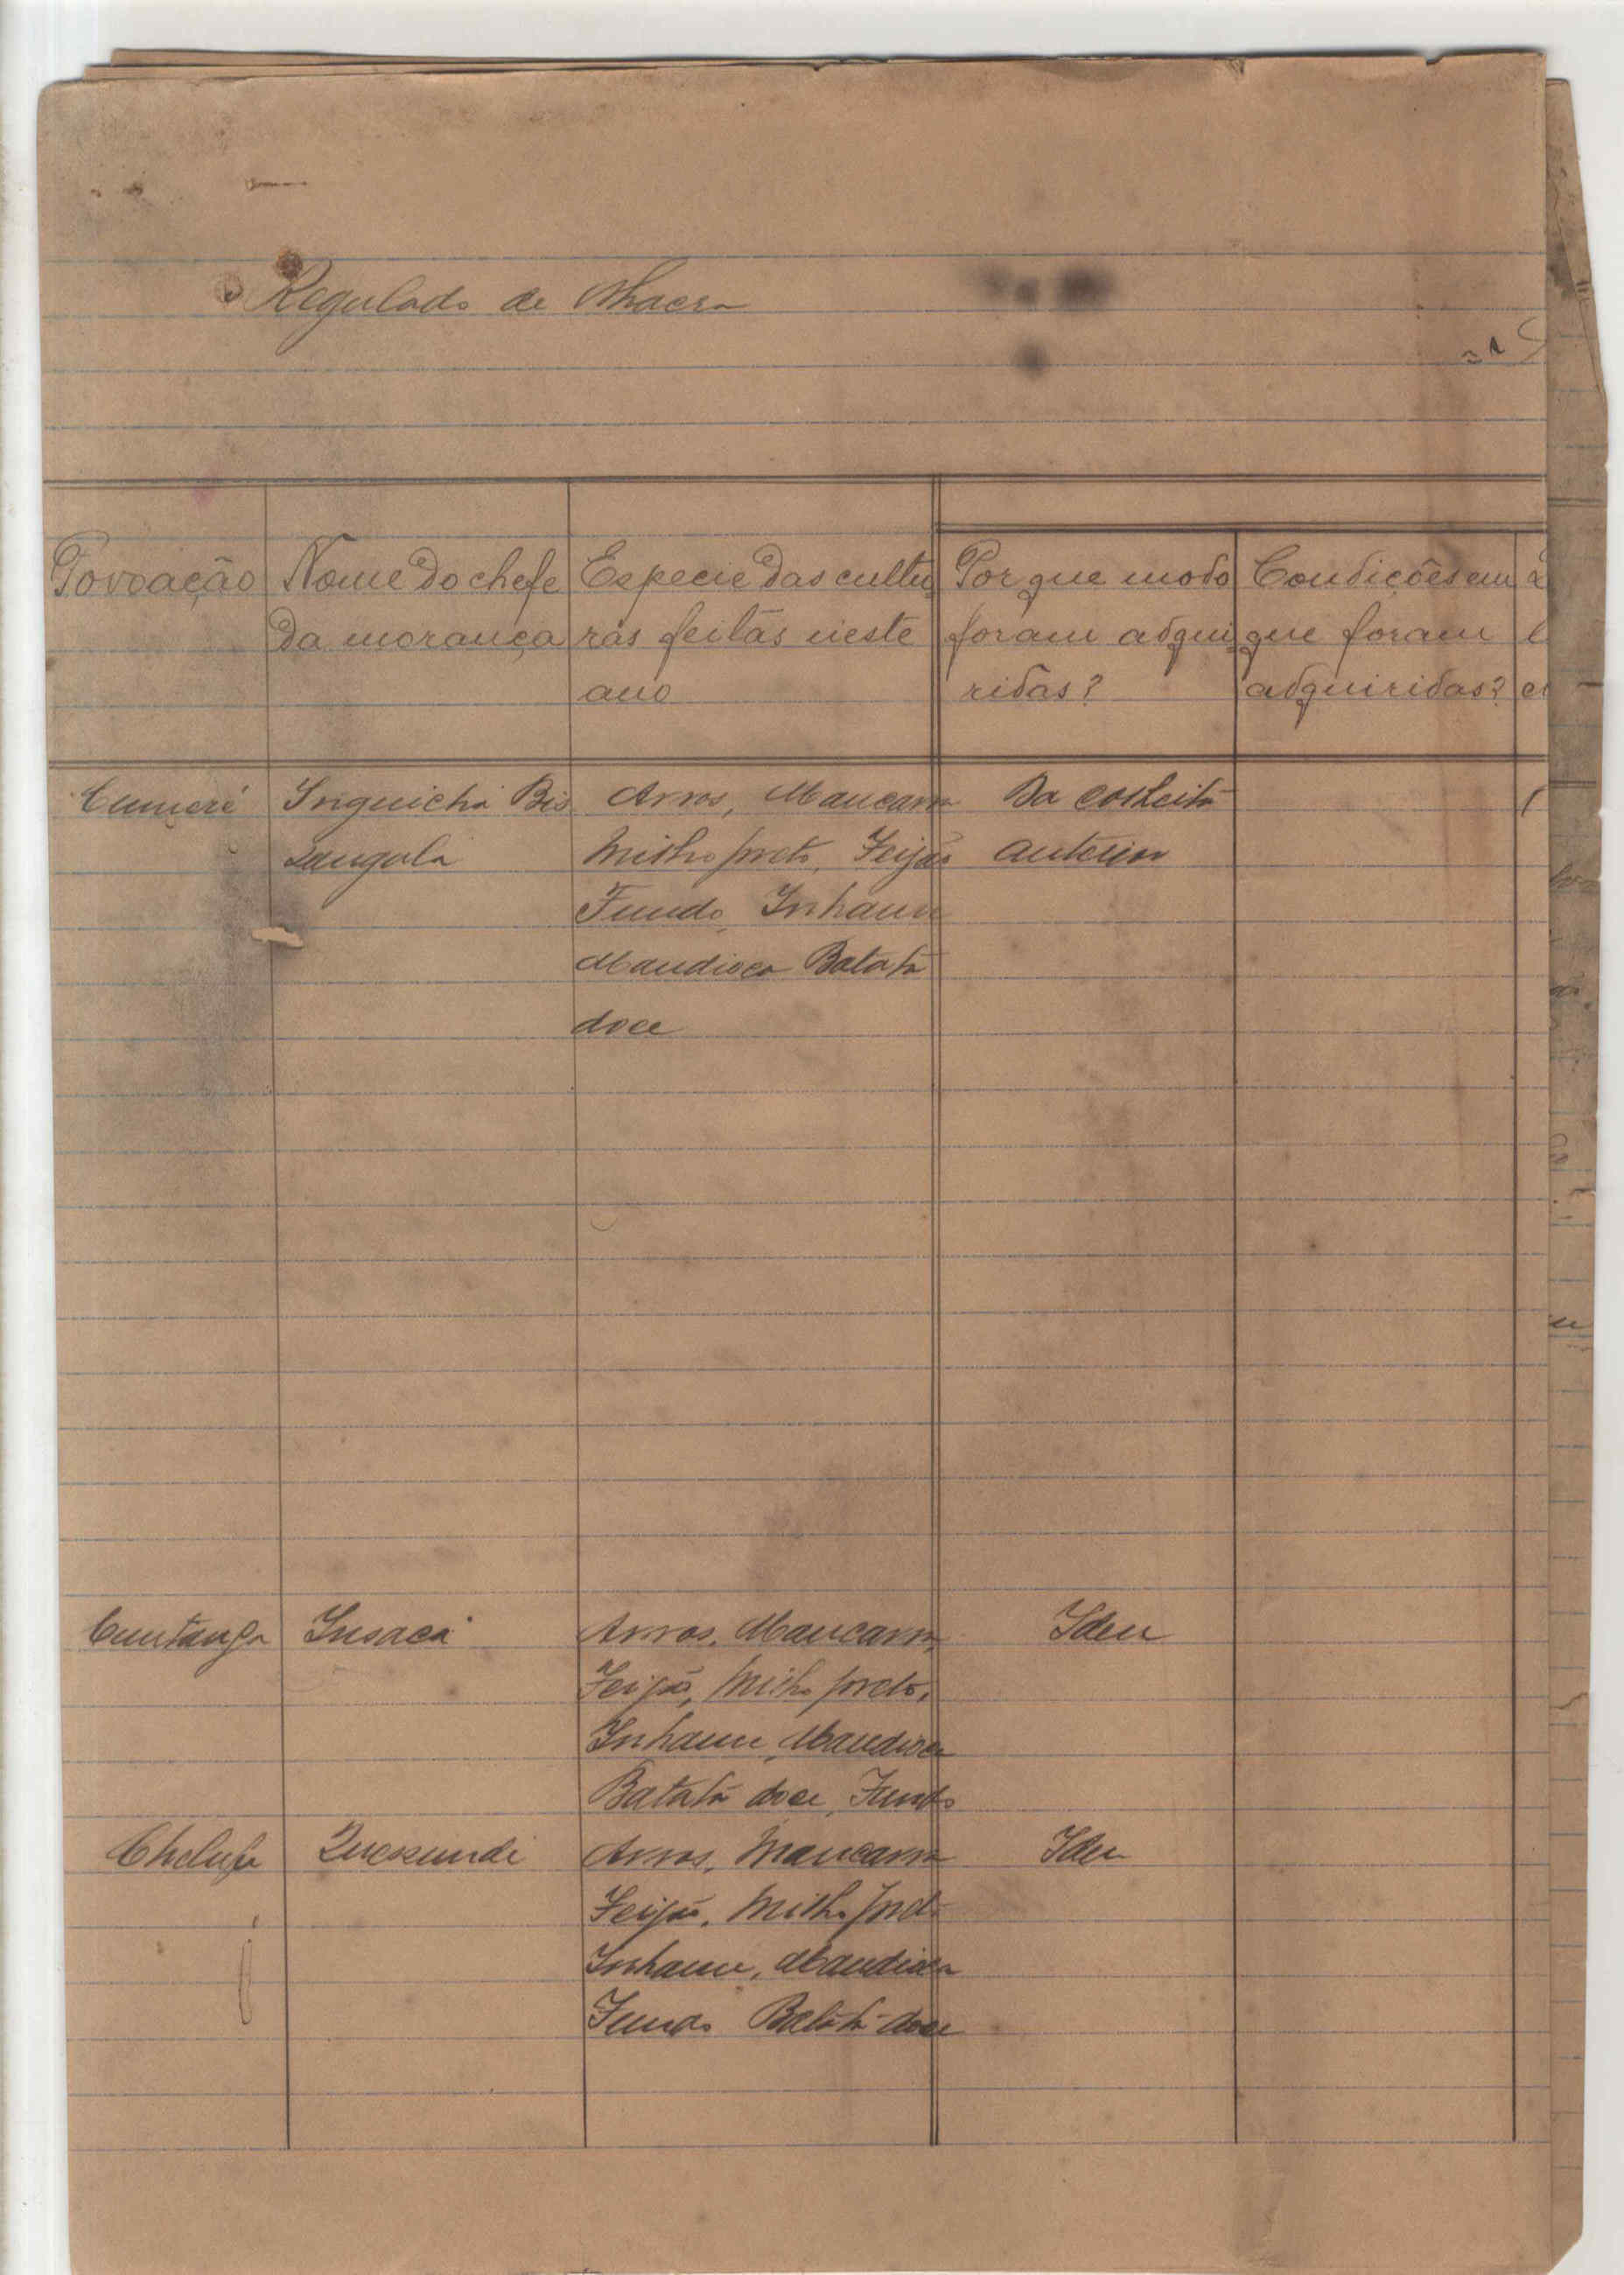 Regulado de Nhacra
Povoação
Nome do chefe
da morança
Especie das cultu
ras feitas neste
ano
Por que modo
foram adqui
ridas?
Condições em
que foram
adquiridas?
Cumeré Inguichá Bis Arros, Mancarra Da colheita
Zangula Milho preto, Feijão anterior
Fundo, Inhame
Mandioca Batata
doce
Cuntanga Insacá Arros, Mancarra, Idem
Feijão, Milho preto,
Inhame, Mandioca
Batata doce, Fundo
Arros, Mancarra Idem
Feijão, Milho preto
Inhame, Mandioca
Fundo Batata doce